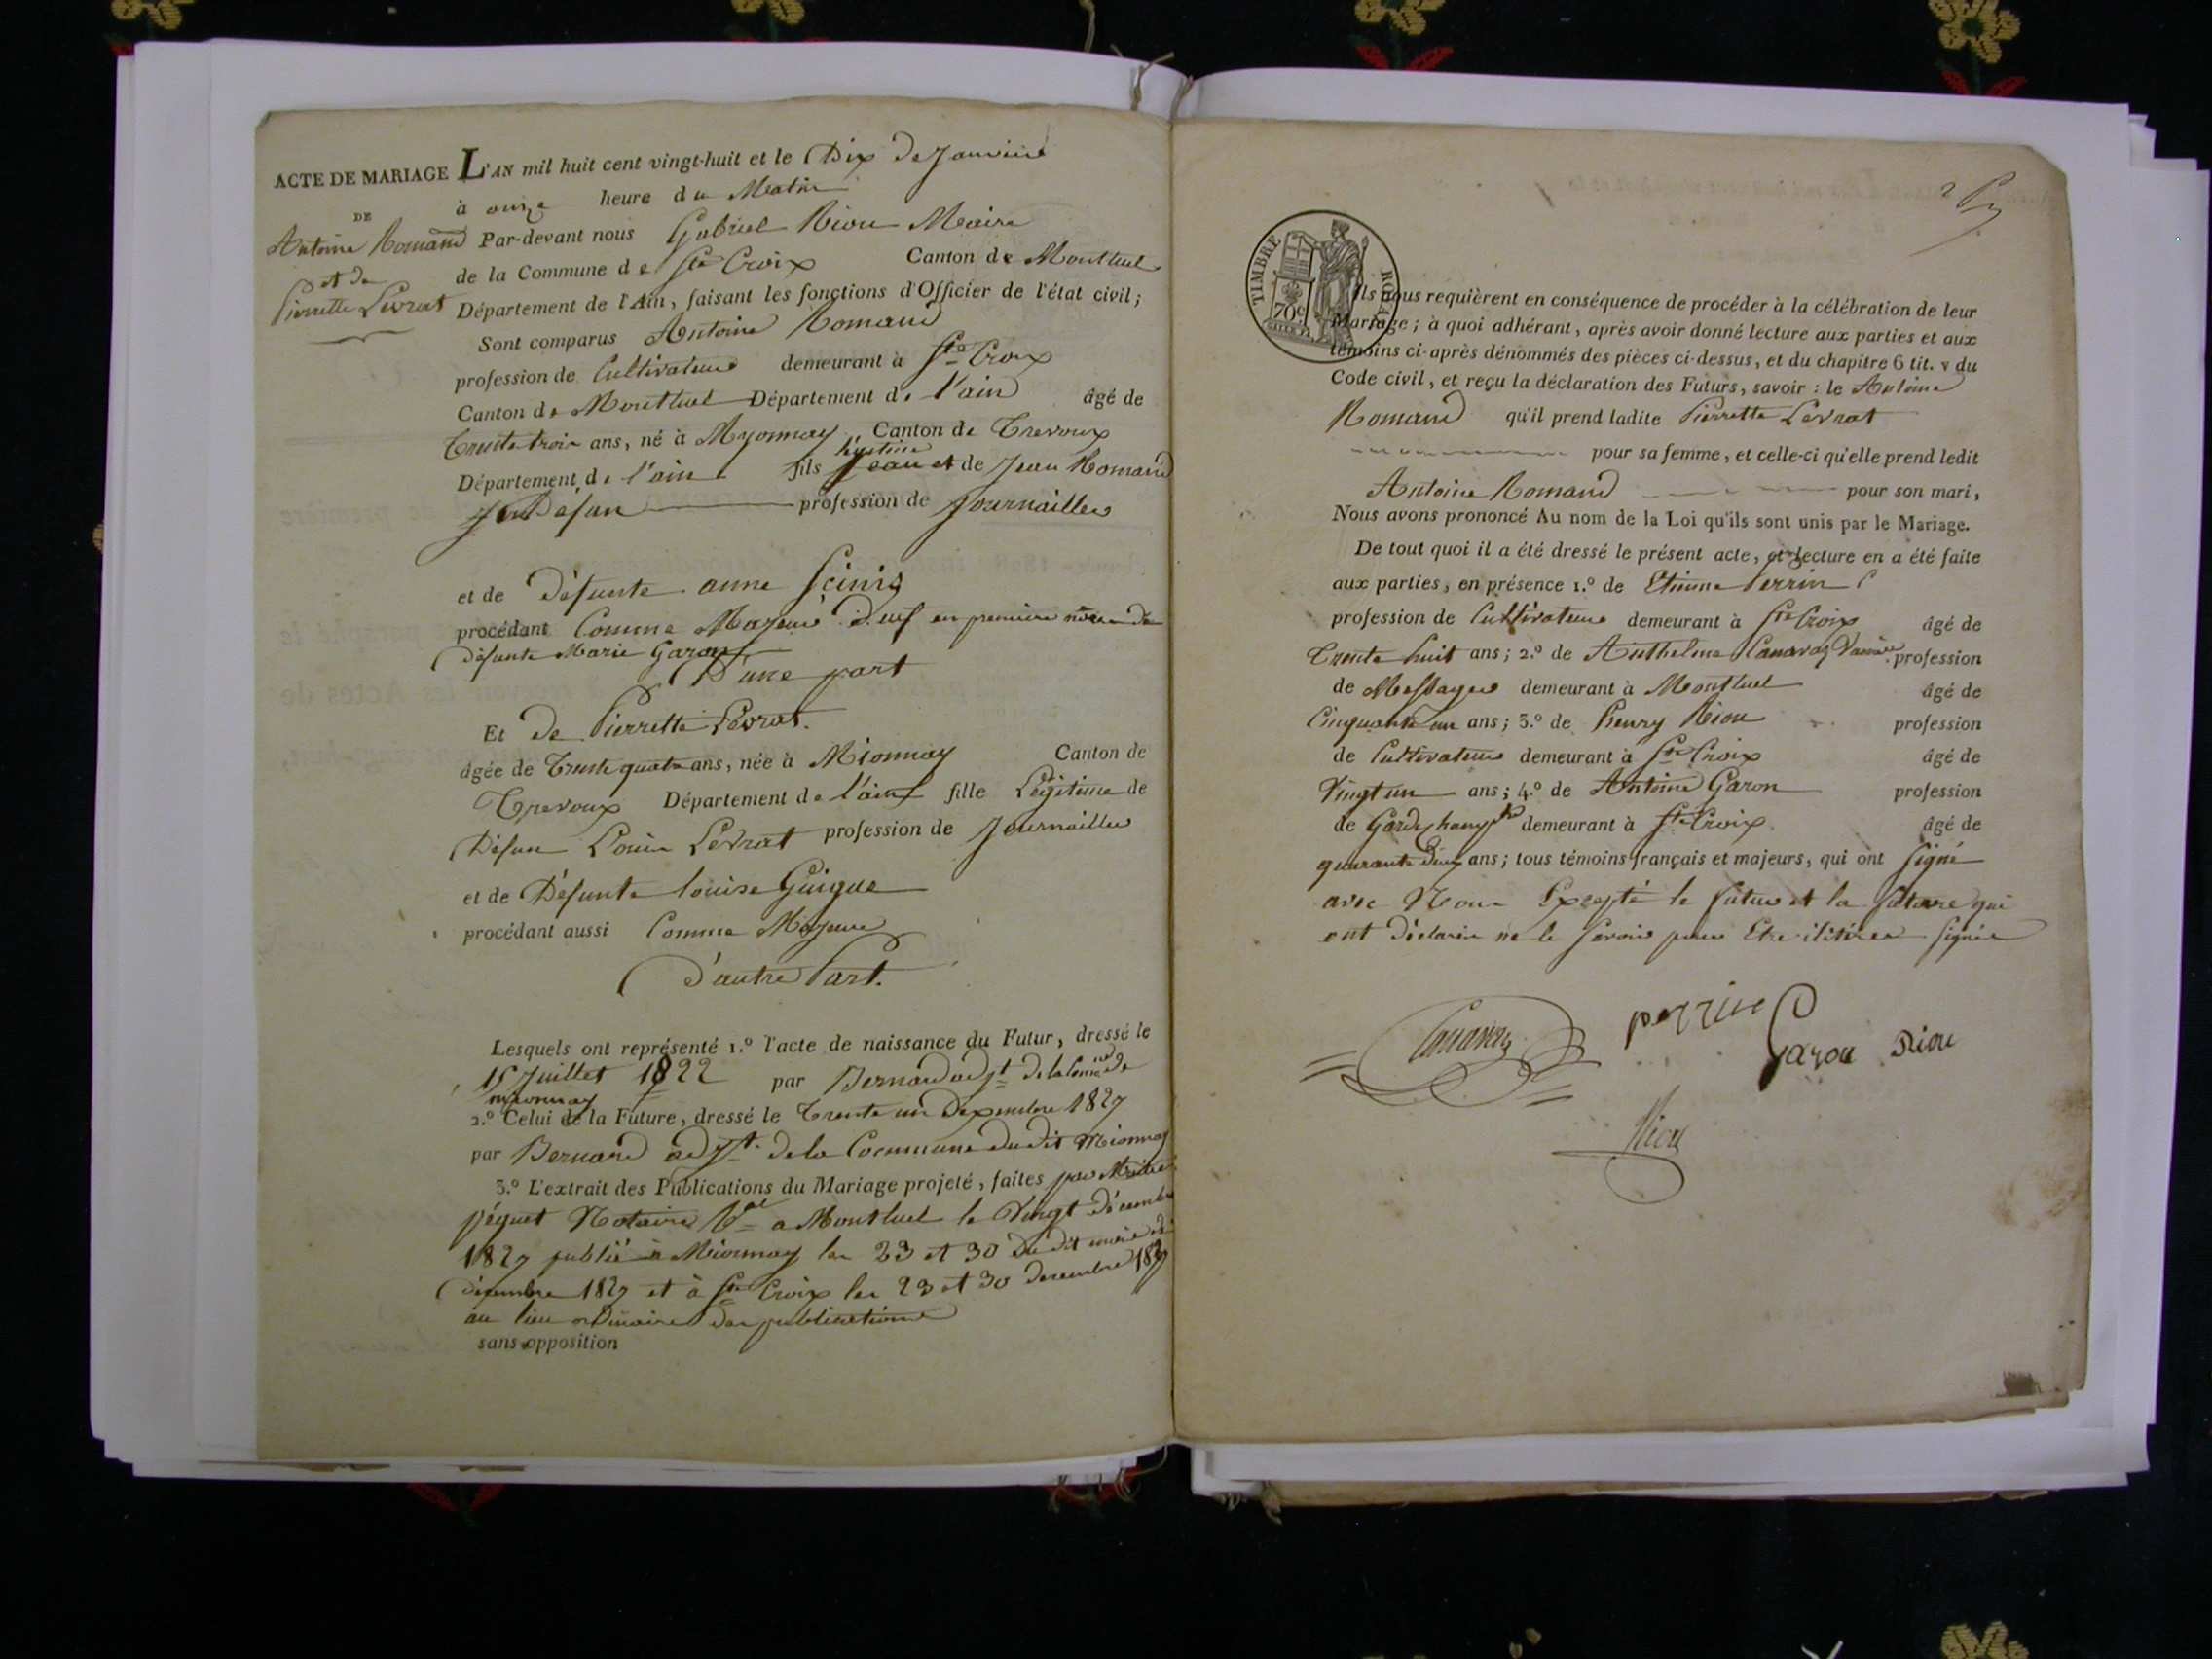 ACTE DE MARIAGE L'AN mil huit cent vingt-huit et le Dix de Janvier
à onze heure du Matin
DE
Antoine Romand
et de
Pierrette Levrat
Par-devant nous Gabriel Riou Maire
de la Commune de Ste Croix Canton de Montluel
Département de l'Ain, faisant les fonctions d'Officier de l'état civil;
Sont comparus Antoine Romand
profession de Cultivateur demeurant à Ste Croix
Canton de Montluel Département de l'ain âgé de
Trente trois ans, né à Myonnay, Canton de Trevoux
Département de l'ain fils de Jean Romand
Défun profession de Journaillier
et de Défunte anne
procédant Comme Majeur en première de
Défunte Marie Garon
D'une part
Et de Pierrette Levrat.
âgée de Trente quatre ans, née à Mionnay Canton de
Trevoux Département de l'ain fille Légitime de
Défun Louis Levrat profession de Journaillier
et de Défunte louise Guigue
procédant aussi Comme Majeure
D'autre Part.
Lesquels ont représenté 1.º l'acte de naissance du Futur, dressé le
15 Juillet 1822 par Bernard adjt de la Comne de
mionnay
2.º Celui de la Future, dressé le Trente un Dexembre 1827
par Bernard adjt. de la Commune du dit Mionnay
3.º L'extrait des Publications du Mariage projeté, faites par Maitre
péquet Notaire a Montluel le Vingt Décembre
1827 publié à Mionnay les 23 et 30 du dit mois de
décembre 1827 et à Ste Croix les 23 et 30 decembre 1827
au lieu ordinaire des publications
sans opposition
2
TIMBRE ROYAL
70c
Ils nous requièrent en conséquence de procéder à la célébration de leur
Mariage; à quoi adhérant, après avoir donné lecture aux parties et aux
témoins ci-après dénommés des pièces ci-dessus, et du chapitre 6 tit. v du
Code civil, et reçu la déclaration des Futurs, savoir : le Antoine
Romand qu'il prend ladite Pierrette Levrat
pour sa femme, et celle-ci qu'elle prend ledit
Antoine Romand pour son mari,
Nous avons prononcé Au nom de la Loi qu'ils sont unis par le Mariage.
De tout quoi il a été dressé le présent acte, et lecture en a été faite
aux parties, en présence 1.º de Etienne Perrin
profession de Cultivateur demeurant à Ste Croix âgé de
Trente huit ans; 2.º de Anthelme Canavaz profession
de Messager demeurant à Montluel âgé de
Cinquante un ans; 3.º de henry Riou profession
de Cultivateur demeurant à Ste Croix âgé de
Vingt un ans; 4.º de Antoine Garon profession
de Garde demeurant à Ste Croix âgé de
quarante deux ans; tous témoins français et majeurs, qui ont signé
avec Nous Excepté le futur et la future qui
ont déclarés ne le savoir signés
Canavaz
perrin
Garon Riou
Riou